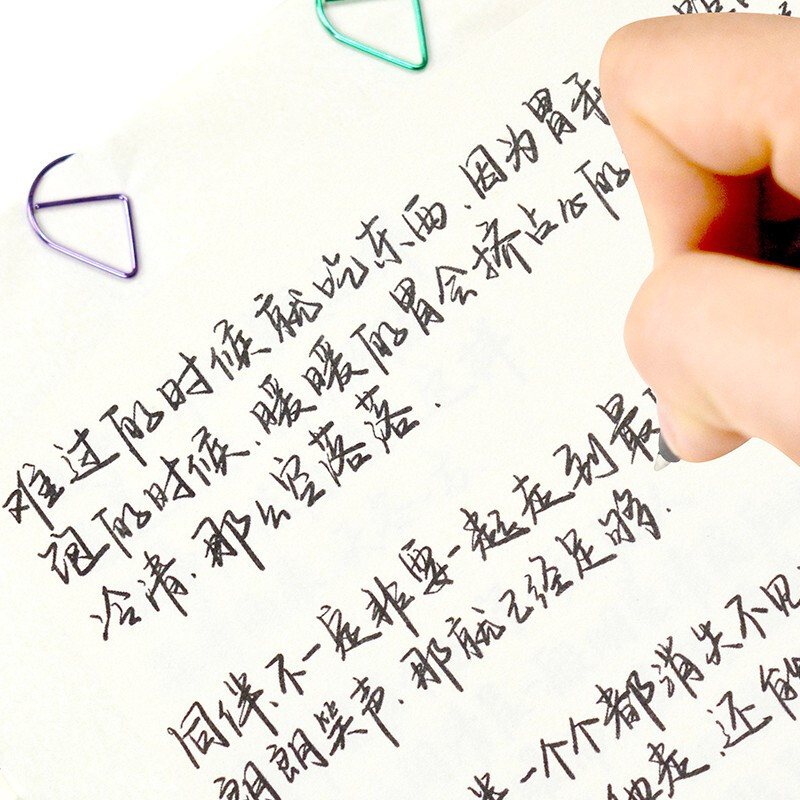 难过的时候就吃东西、因为胃和
饱的时候、暖暖的胃会挤占心的
冷清、那么空落落.
同伴、不一定非要一起走到最
朗朗笑声、那就已经足够.
一个个都消失不见
他走、还能